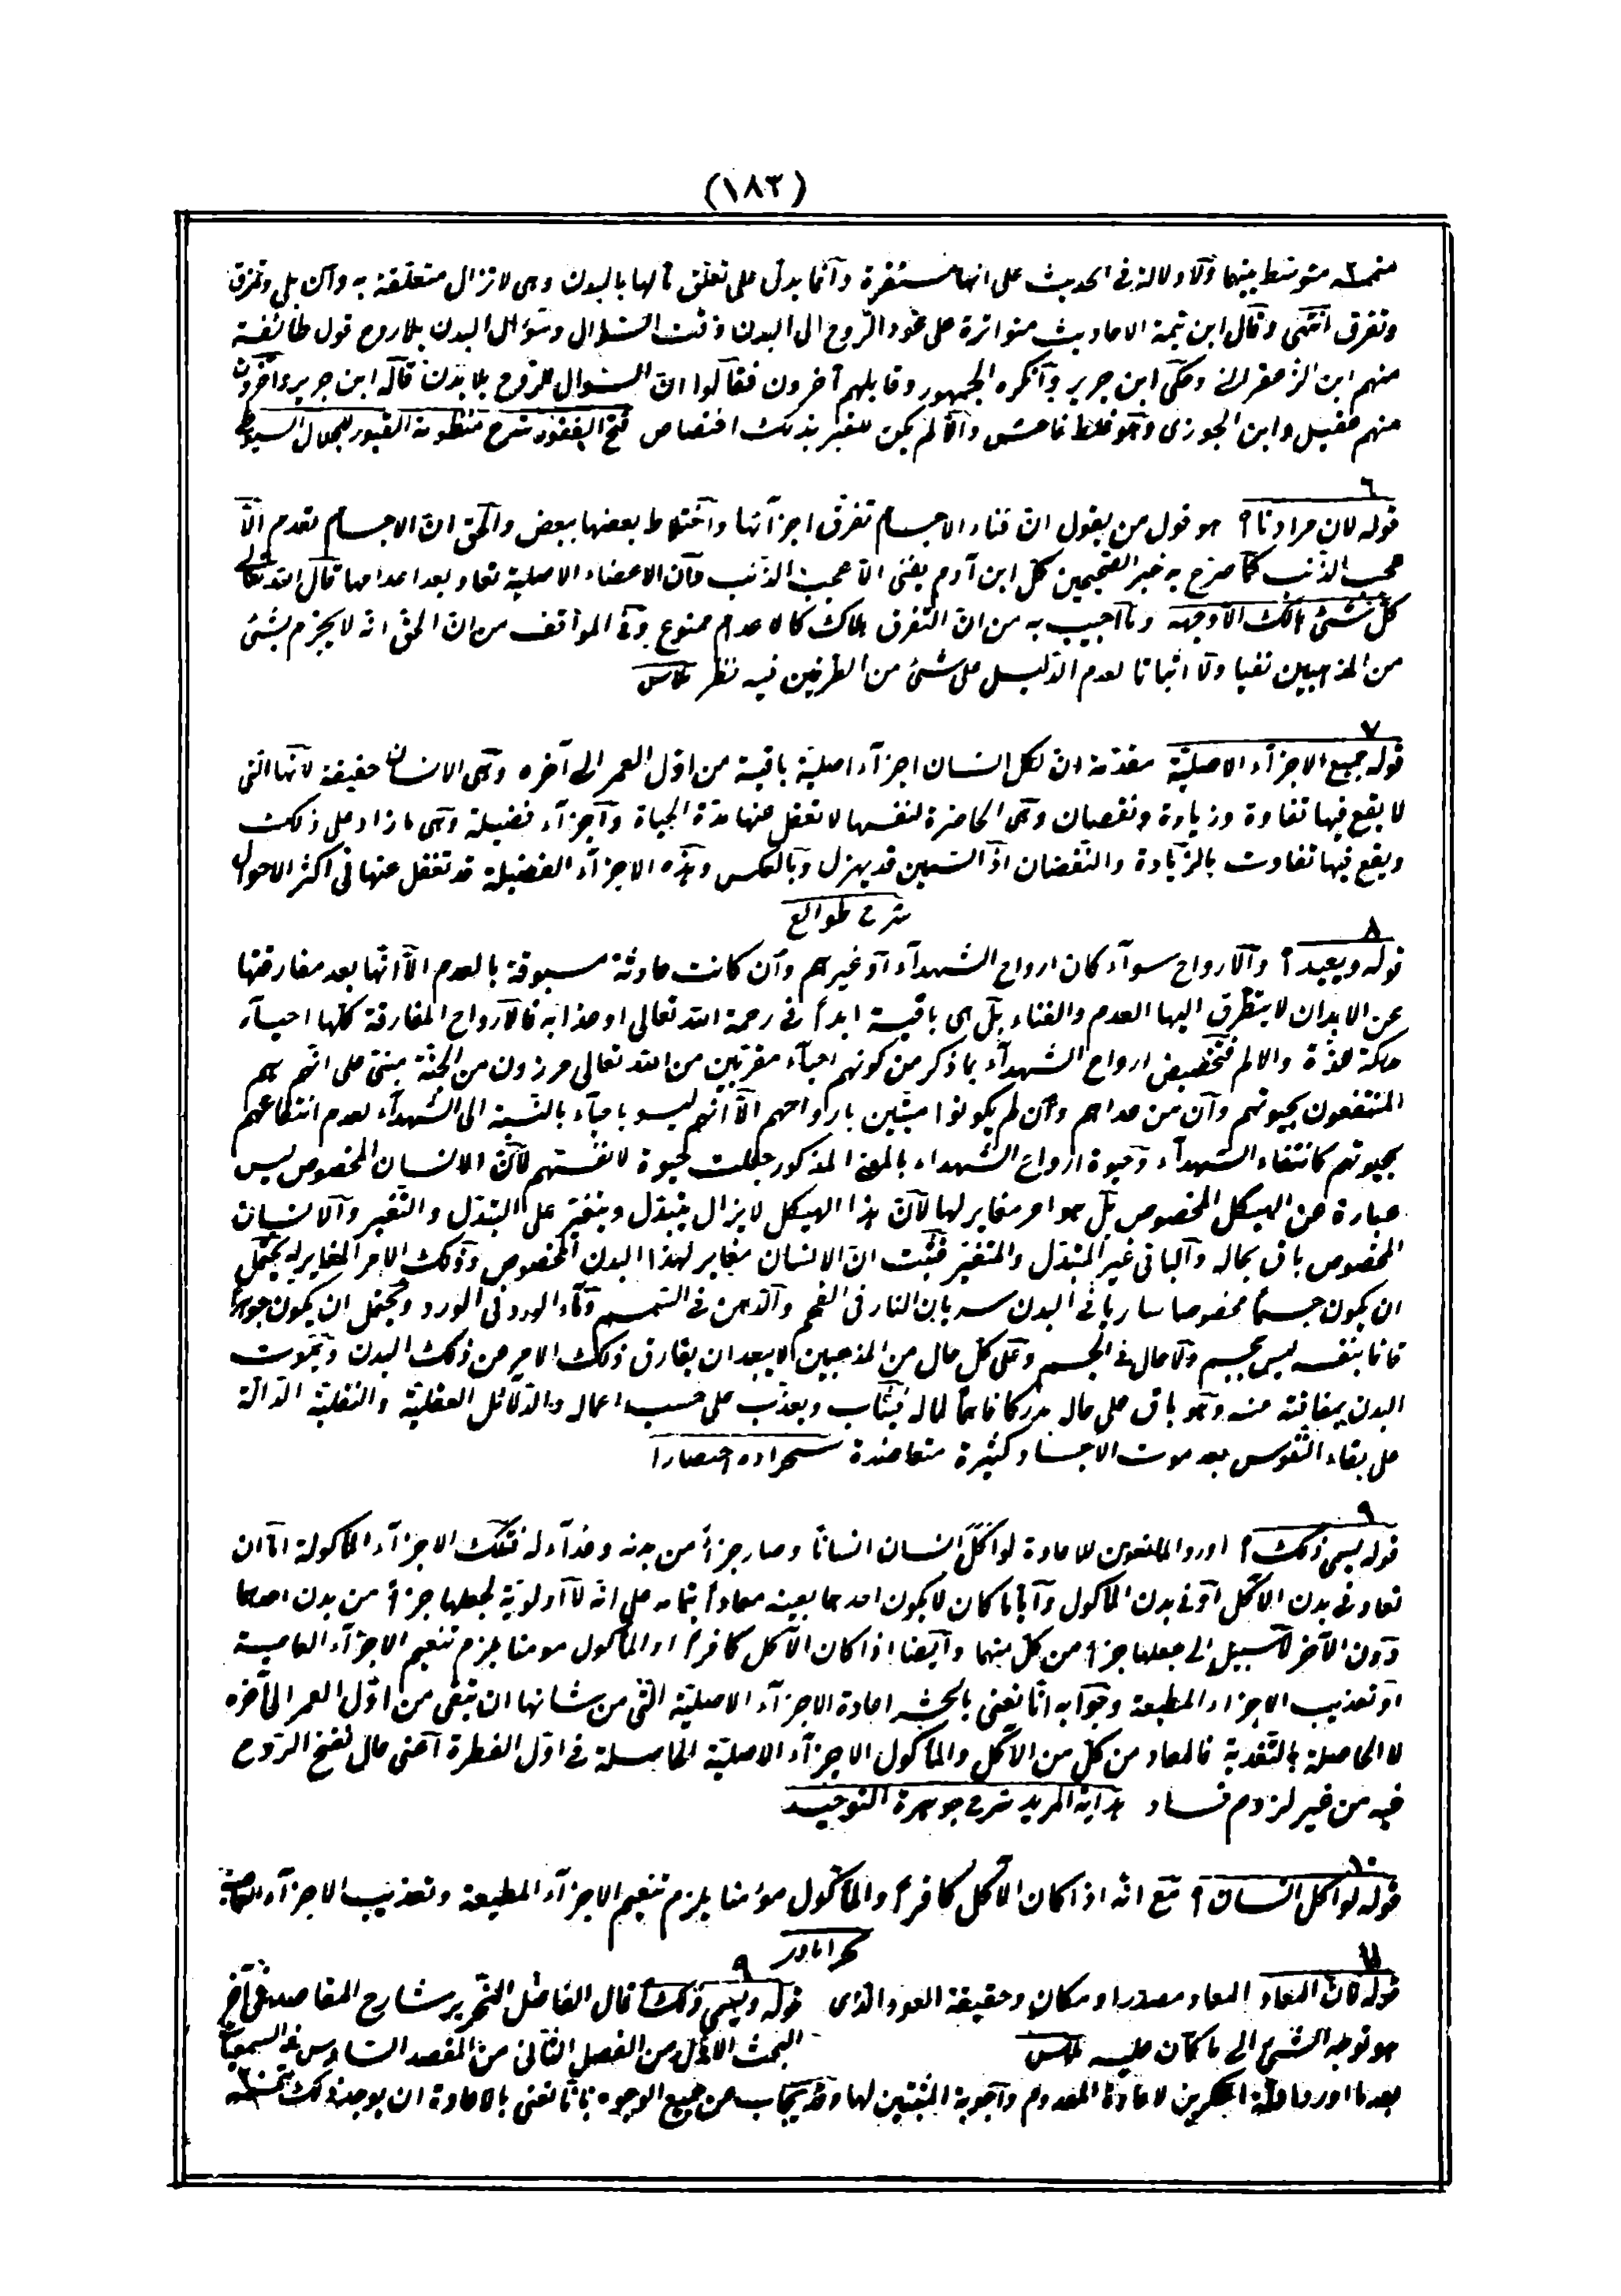 (١٨٣)
متوسط بينهما ولا دلالة فى الحديث على انها مستقرة وانما يدل على تعلق ما لها بالبدن وهى لا تزال متعلقة به وان بلى وتمزق
وتفرق انتهى وقال ابن تيمية الاحاديث متواترة على عود الروح الى البدن وقت السؤال وسؤال البدن بلا روح قول طائفة
منهم ابن الزعفرانى وحكى ابن جرير وانكره الجمهور وقابلهم آخرون فقالوا ان السؤال للروح بلا بدن قاله ابن جرير وآخرون
منهم عقيل وابن الجوزى وهو غلط فاحش والا لم يكن للقبر بذلك اختصاص فتح الغفور شرح منظومة القبور للجلال السيوطى
٦
قوله لان مرادنا ؟ هو قول من يقول ان فناء الاجسام تفرق اجزائها واختلاط بعضها ببعض والحق ان الاجسام تعدم الا
عجب الذنب كما صرح به خبر الصحيحين كل ابن آدم يفنى الا عجب الذنب وان الاعضاء الاصلية تعاد بعد اعدامها قال الله تعالى
كل شئ هالك الا وجهه وما اجيب به من ان التفرق هلاك كالاعدام ممنوع وفى المواقف من ان الحق انه لا يجزم بشئ
من المذهبين نفيا ولا اثباتا لعدم الدليل على شئ من الطرفين فيه نظر
٧
قوله جميع الاجزاء الاصلية مقدمة ان لكل انسان اجزاء اصلية باقية من اول العمر الى آخره وهى الانسان حقيقة لانها التى
لا يقع فيها تفاوة وزيادة ونقصان وهى الحاضرة لنفسها لا تغفل عنها مدة الحياة واجزاء فضيلة وهى ما زاد على ذلك
ويقع فيها تفاوت بالزيادة والنقصان اذ السمين قد يهزل وبالعكس وهذه الاجزاء الفضيلة قد تغفل عنها فى اكثر الاحوال
شرح طوالع
٨
قوله ويعيد ؟ والارواح سواء كان ارواح الشهداء او غيرهم وان كانت حادثة مسبوقة بالعدم الا انها بعد مفارقتها
عن الابدان لا يتطرق اليها العدم والفناء بل هى باقية ابدا فى رحمة الله تعالى او عذابه فالارواح المفارقة كلها احياء
مدركة للذة والالم فتخصيص ارواح الشهداء بما ذكر من كونهم احياء مقربين من الله تعالى مرزقون من الجنة مبنى على انهم هم
المنتفعون بحيوتهم وان من عداهم وان لم يكونوا ميتين بارواحهم الا انهم ليسو باحياء بالنسبة الى الشهداء لعدم انتفاعهم
بحيوتهم كانتفاء الشهداء وحيوة ارواح الشهداء بالمعنى المذكور جعلت حيوة لانفسهم لان الانسان المخصوص ليس
عبارة عن الهيكل المخصوص بل هو امر مغاير لها لان هذا الهيكل لا يزال يتبدل ويتغير على التبدل والتغير والانسان
المخصوص باق بحاله والباقى غير المتبدل والمتغير فثبت ان الانسان مغاير لهذا البدن المخصوص وذلك الامر المغاير له يحتمل
ان يكون جسما مخصوصا ساريا فى البدن سريان النار فى الفحم والدهن فى السمسم وماء الورد فى الورد ويحتمل ان يكون جوهرا
قائما بنفسه ليس بجسم ولا حال فى الجسم وعلى كل حال من المذهبين لا يبعد ان يفارق ذلك الامر من ذلك البدن ويموت
البدن بمفارقته منه وهو باق على حاله مدركا فاهما لماله فيثاب ويعذب على حسب اعماله والدلائل العقلية والنقلية الدالة
على بقاء النفوس بعد موت الاجساد كثيرة متعاضدة شيخزاده اختصارا
٩
قوله يسمى ذلك ؟ اورد المانعون للاعادة لو اكل انسان انسانا وصار جزأ من بدنه وغذاء له فتلك الاجزاء المأكولة اما ان
تعاد فى بدن الآكل او فى بدن المأكول وايا ما كان لا يكون احدهما بعينه معادا بتمامه على انه لا اولوية لجعلها جزأ من بدن احدهما
دون الآخر لا سبيل الى جعلها جزأ من كل منهما وايضا اذا كان الآكل كافرا او المأكول مومنا يلزم تنعيم الاجزاء العاصية
او تعذيب الاجزاء المطيعة وجوابه انا نعنى بالحشر اعادة الاجزاء الاصلية التى من شانها ان تبقى من اول العمر الى آخره
لا الحاصلة بالتغذية فالمعاد من كل من الآكل والمأكول الاجزاء الاصلية الحاصلة فى اول الفطرة اعنى حال نفخ الروح
فيه من غير لزوم فساد هداية المريد شرح جوهرة التوحيد
١٠
قوله لو اكل انسان ؟ مع انه اذا كان الآكل كافرا والمأكول مؤمنا يلزم تنعيم الاجزاء المطيعة وتعذيب الاجزاء العاصية
١١
قوله فان المعاد المعاد مصدر او مكان وحقيقة العود الذى
هو توجه الشئ الى ما كان عليه
٩
قوله ويسمى ذلك قال الفاضل النحرير شارح المقاصد فى آخر
البحث الاول من الفصل الثانى من المقصد السادس فى السمعيات
بعد ما اورد ادلة المنكرين لاعادة المعدوم واجوبة المثبتين لها وقد يجاب عن جميع الوجوه بانا نعنى بالاعادة ان يوجد ذلك